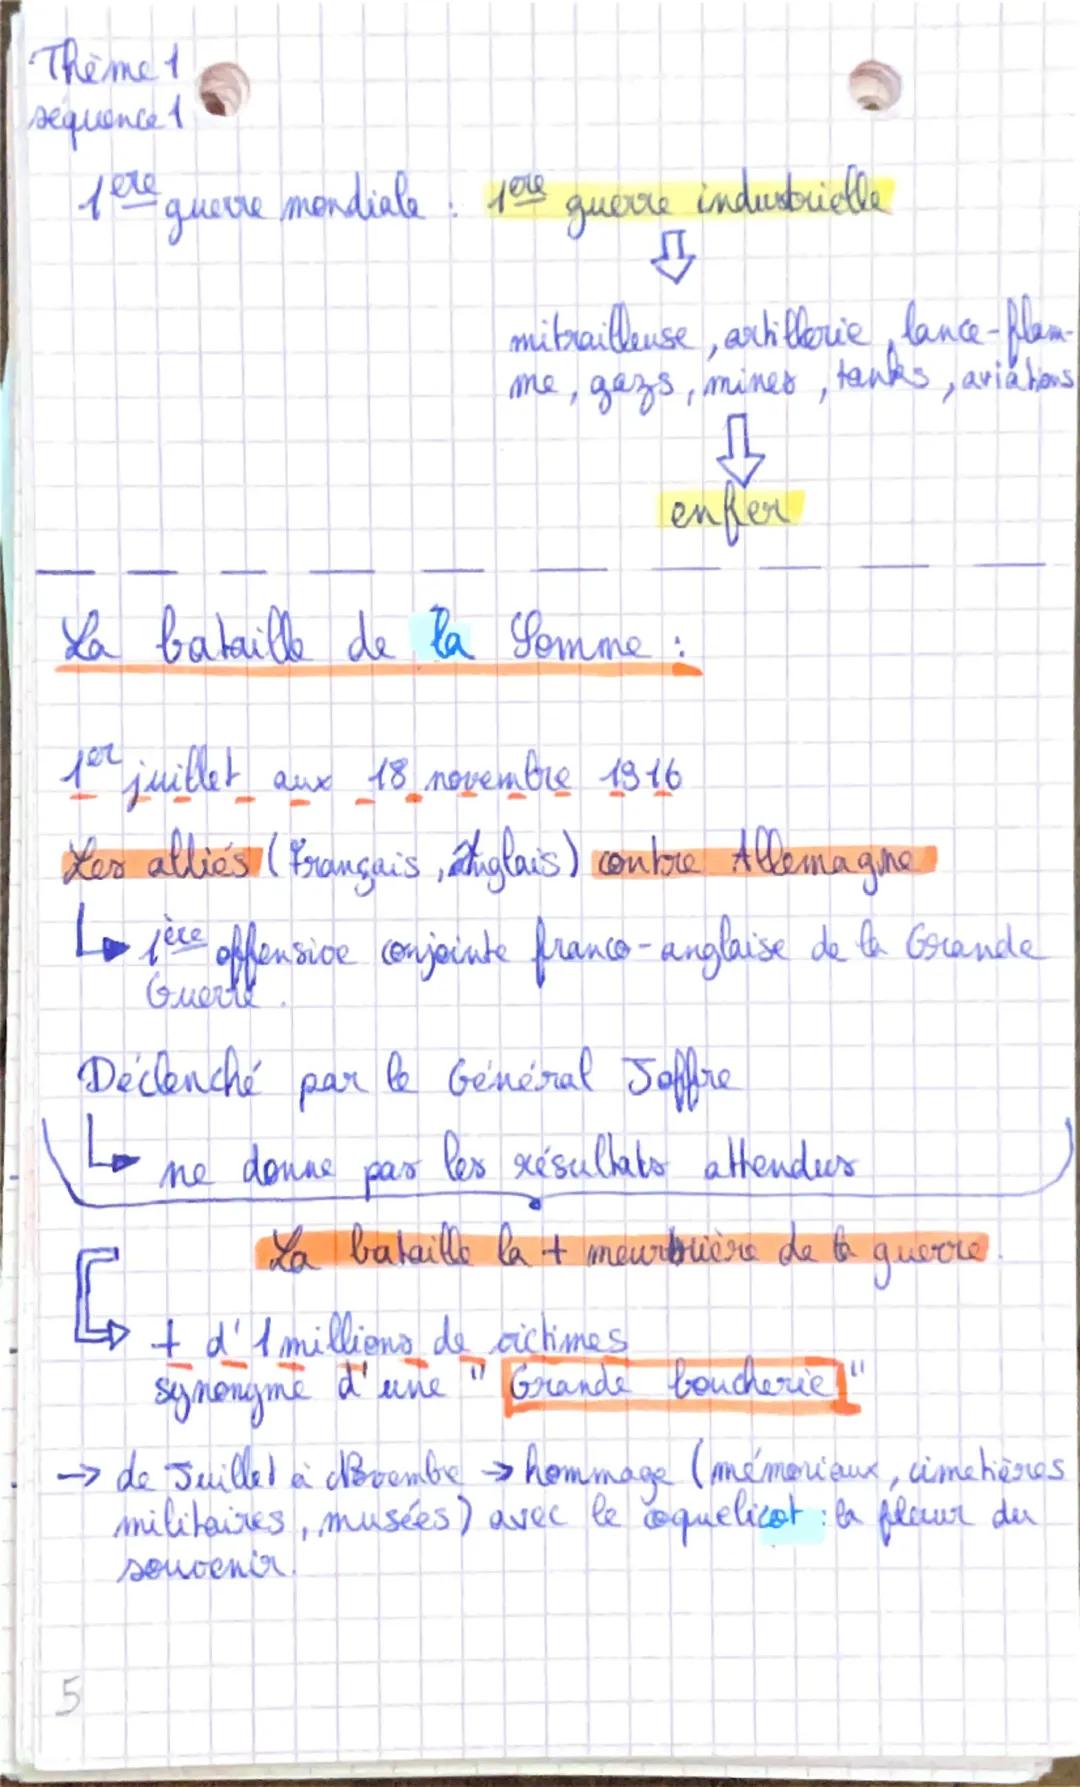 Thème 1
séquence 1
1ère guerre mondiale : 1ère guerre industrielle
mitrailleuse, artillerie, lance-flam-
me, gazs, mines, tanks, aviations
enfer
La bataille de la Somme :
1er juillet aux 18 novembre 1916
Les alliés (Français, Anglais) contre Allemagne
1ère offensive conjointe franco-anglaise de la Grande
Guerre.
Déclenché par le Général Joffre
ne donne pas les résultats attendus
La bataille la + meurtrière de la guerre.
+ d'1 millions de victimes
synonyme d'une "Grande boucherie"
→ de Juillet à Novembre → hommage (mémoriaux, cimetières
militaires, musées) avec le coquelicot : la fleur du
souvenir.
5